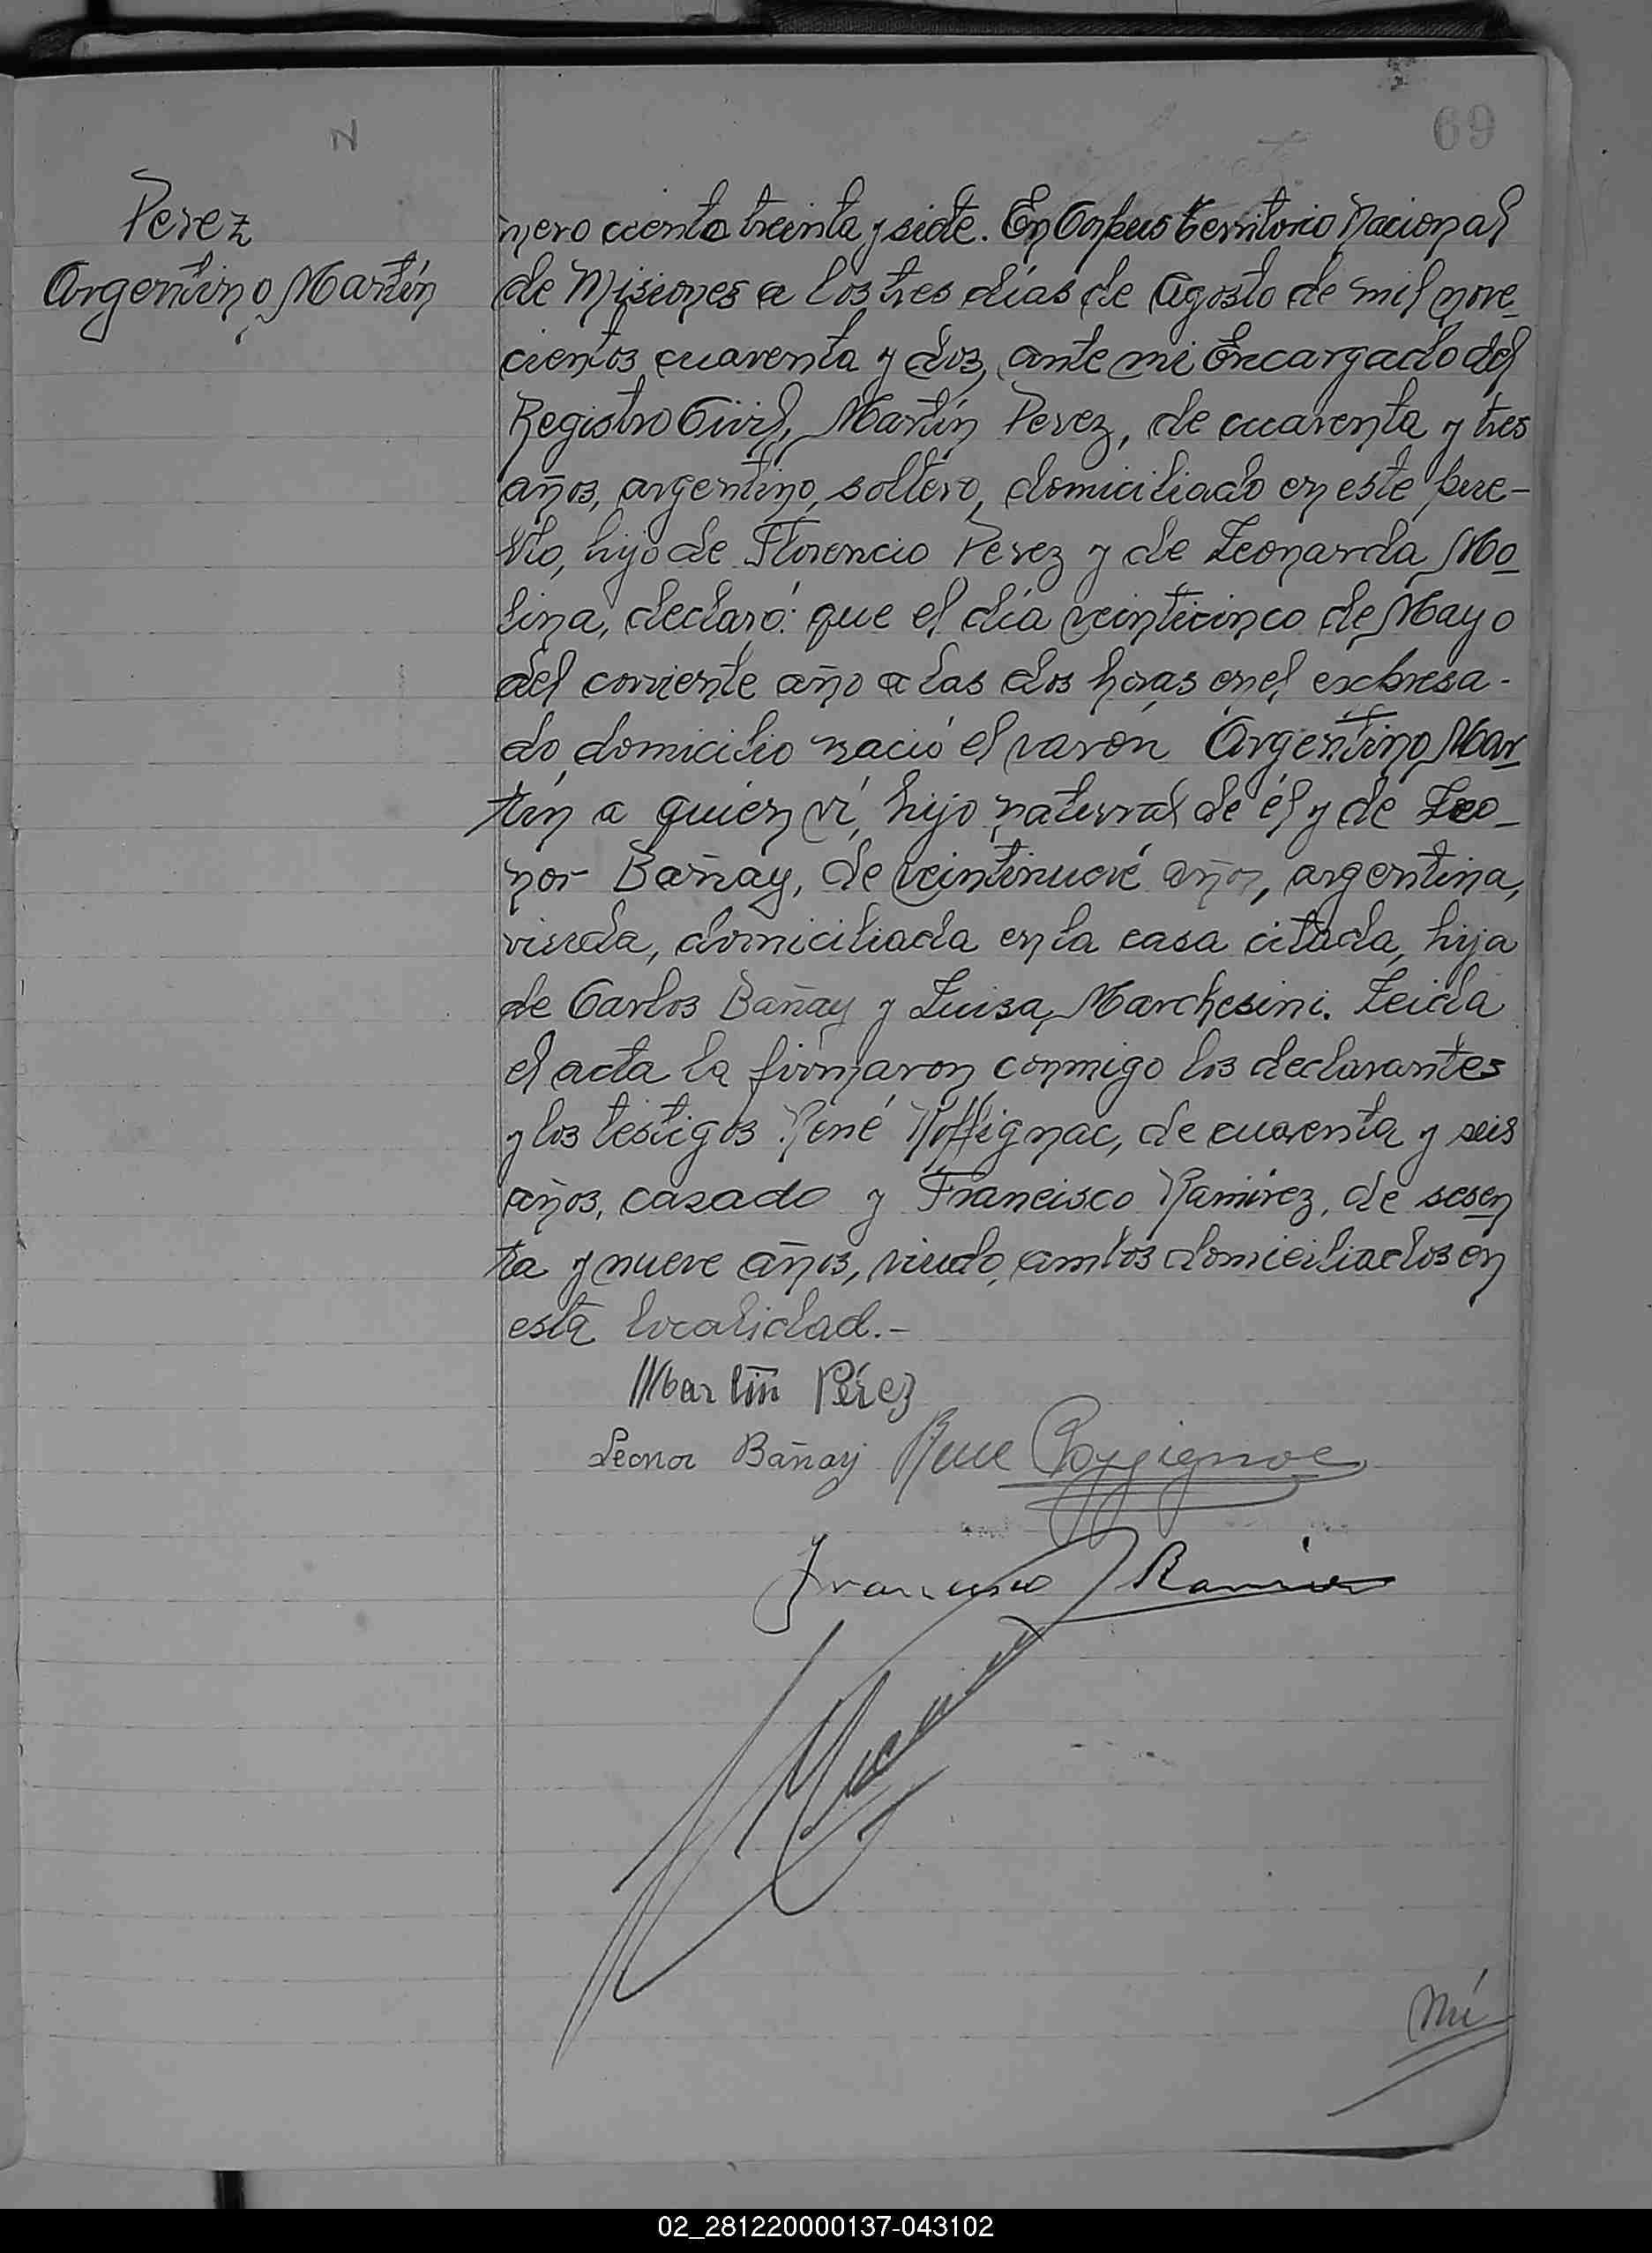 N
69
Perez
Argentino Martín
mero ciento treinta y siete. En Corpus Territorio Nacional
de Misiones a los tres días de Agosto de mil nove-
cientos cuarenta y dos, ante mi Encargado del
Registro Civil, Martín Perez, de cuarenta y tres
años, argentino, soltero, domiciliado en este pue-
blo, hijo de Florencio Perez y de Leonarda Mo-
lina, declaró: que el día veinticinco de Mayo
del corriente año a las dos horas en el expresa-
do domicilio nació el varón Argentino Mar-
tín a quien ví, hijo natural de él y de Leo-
nor Bañay, de veintinueve años, argentina,
viuda, domiciliada en la casa citada, hija
de Carlos Bañay y Luisa Marchesini. Leida
el acta la firmaron conmigo los declarantes
y los testigos René Roffignac, de cuarenta y seis
años, casado y Francisco Ramírez, de sesen-
ta y nueve años, viudo, ambos domiciliados en
esta localidad.-
Martín Pérez
Leonor Bañay Rene Roffignac
Francisco Ramirez
Nú
02_281220000137-043102